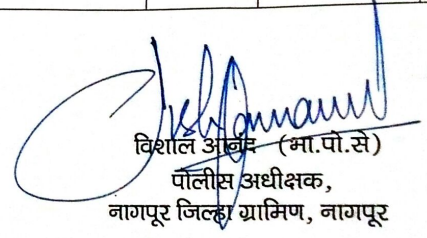 विशाल आनंद (भा.पो.से)
पोलीस अधीक्षक,
नागपूर जिल्हा ग्रामिण, नागपूर